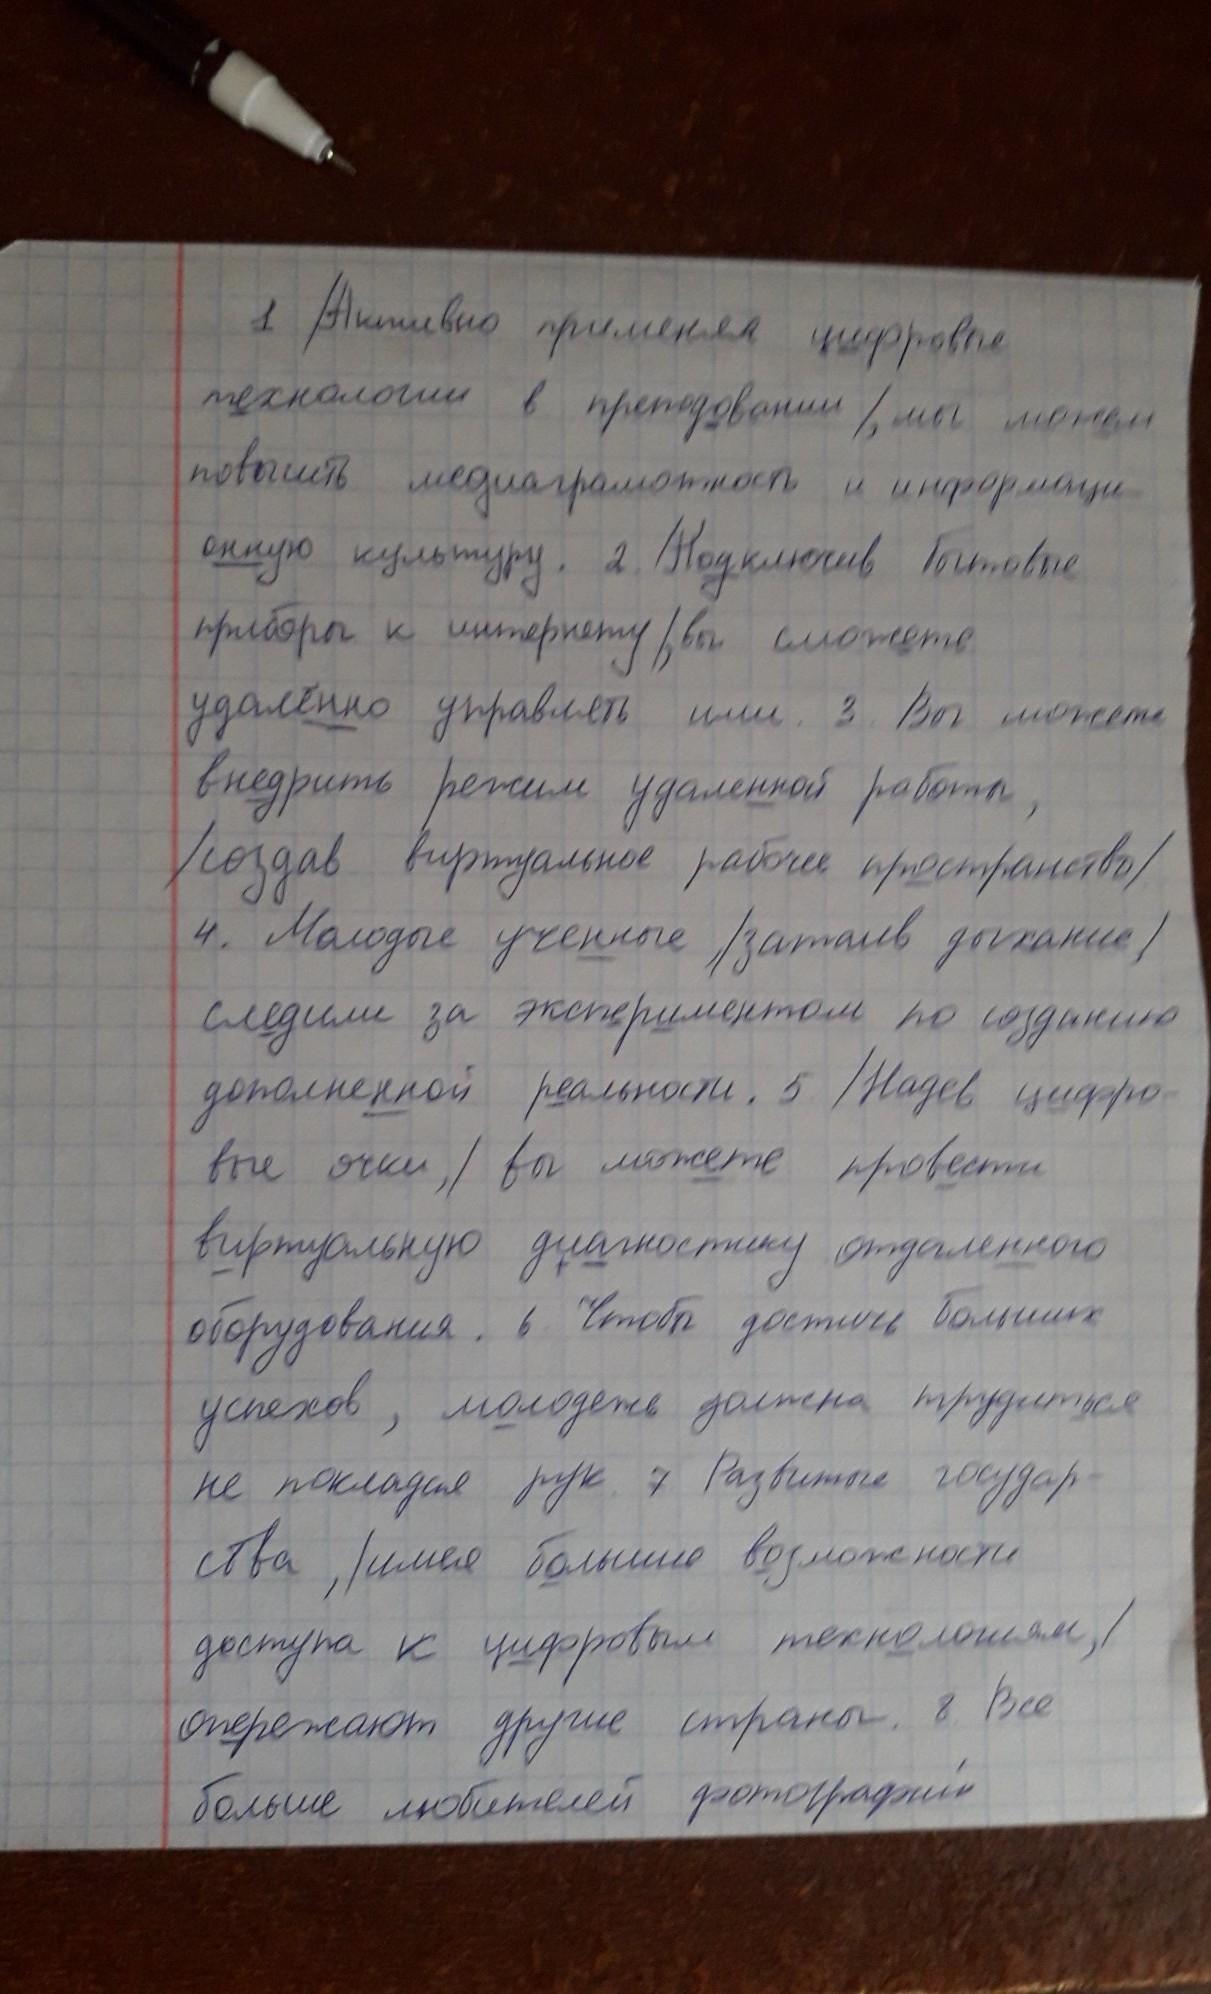 1 /Активно применяя цифровые
технологии в преподовании/, мы можем
повысить медиаграмотность и информаци-
онную культуру. 2. /Подключив бытовые
приборы к интернету/, вы сможете
удалённо управлять ими. 3. Вы можете
внедрить режим удаленной работы,
/создав виртуальное рабочее пространство/
4. Молодые ученные, /затаив дыхание,/
следили за экспериментом по созданию
дополненной реальности. 5 /Надев цифро-
вые очки,/ вы можете провести
виртуальную диагностику отдаленного
оборудования. 6 Чтобы достичь больших
успехов, молодежь должна трудиться
не покладая рук. 7 Развитые государ-
ства, /имея большие возможности
доступа к цифровым технологиям,/
опережают другие страны. 8. Все
больше любителей фотографий